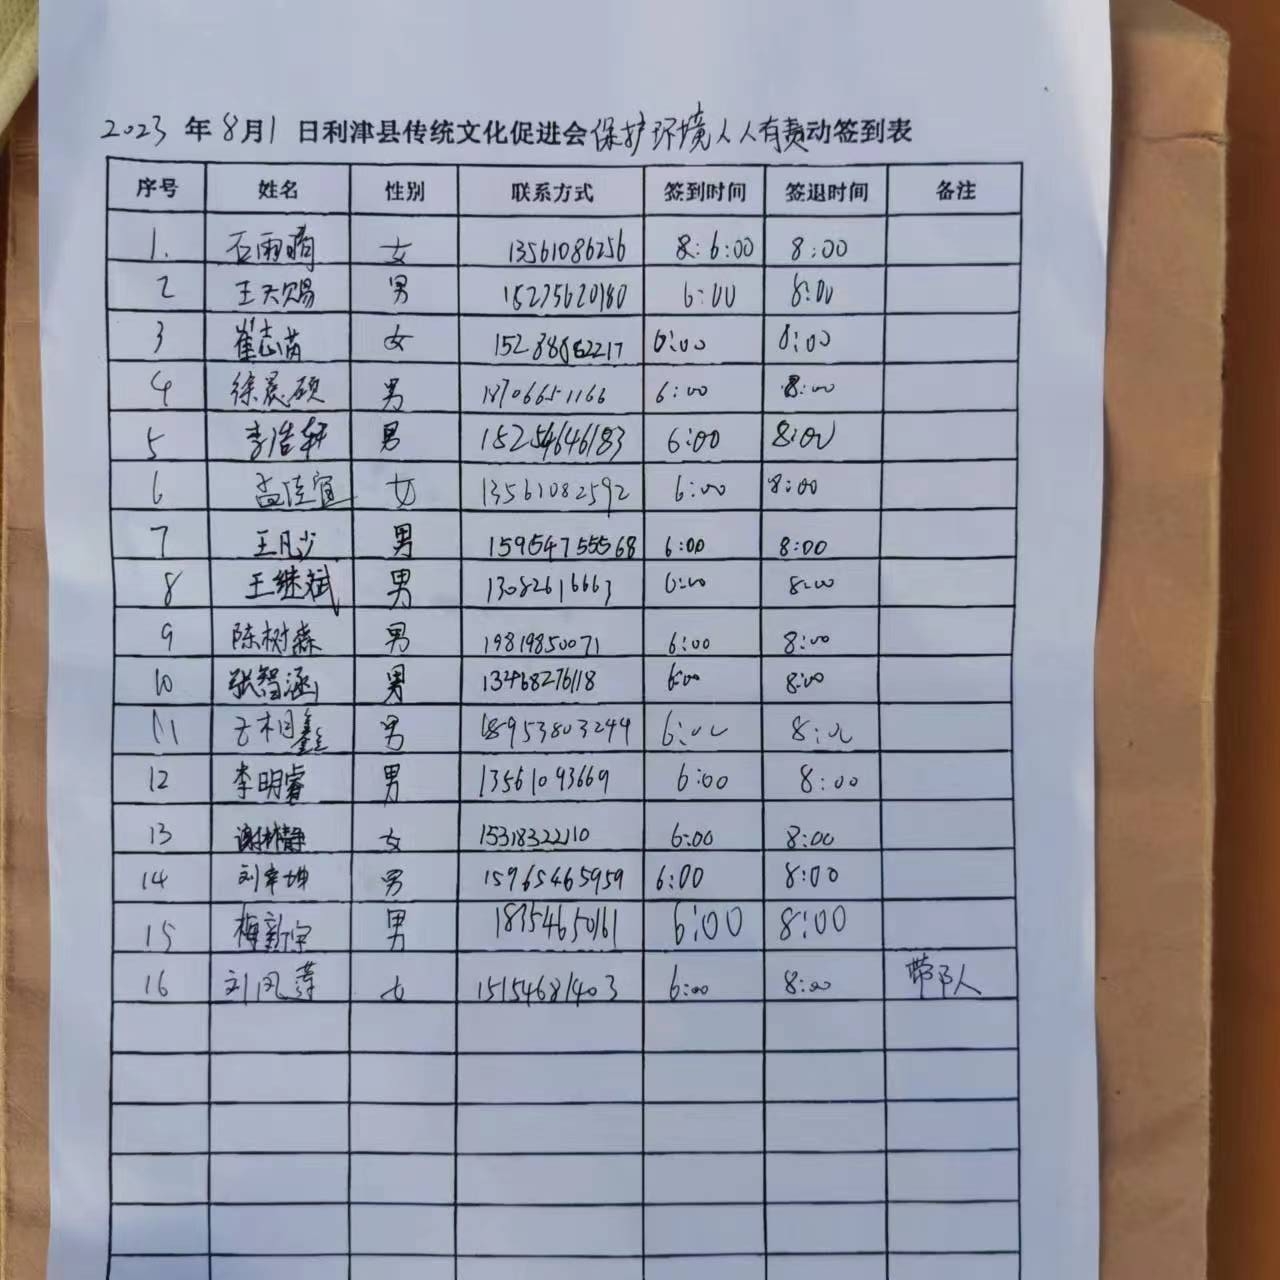 2023 年 8月1 日利津县传统文化促进会保护环境人人有责动签到表
序号 姓名 性别 联系方式 签到时间 签退时间 备注
1. 石雨晴 女 13561086256 8:6:00 8:00
2 王天赐 男 15275620180 6:00 8:00
3 崔志芮 女 6:00 8:00
4 徐晨硕 男 18706651166 6:00 8:00
5 李浩轩 男 15254646183 6:00 8:00
6 孟佳宜 女 13561082592 6:00 8:00
7 王凡少 男 159547555568 6:00 8:00
8 王继斌 男 13082616663 6:00 8:00
9 陈树森 男 19819850071 6:00 8:00
10 张智涵 男 13468276118 6:00 8:00
11 相鑫 男 18953803244 6:00 8:00
12 李明睿 男 13561093669 6:00 8:00
13 谢林静 女 15318322110 6:00 8:00
14 刘宇坤 男 15965465959 6:00 8:00
15 梅新宇 男 18354650161 6:00 8:00
16 刘凤萍 女 15154681403 6:00 8:00 带队人